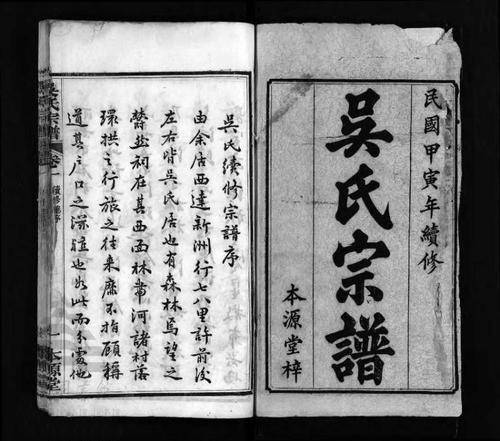 民國甲寅年續修
吳氏宗譜
本源堂梓
吳氏續修宗譜序
由余居西達新洲行七八里許前後
左右皆吳氏居也有森林焉望之
蔚然祠在其西面林帶河諸村落
環拱之行旅之往來靡不指顧稱
道其戶口之深殖也如此而分處他
吳氏宗譜
卷一
續修譜序
一
本源堂